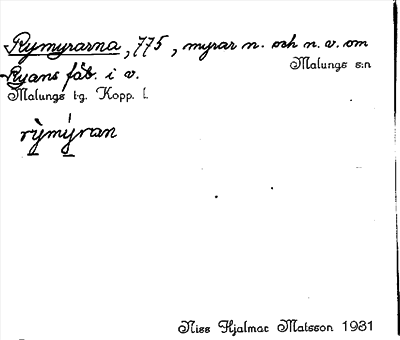 Rymyrarna, 775, myrar n. och n. v. om
Ryans fäb. i v.
Malungs s:n
Malungs tg. Kopp. l.
rỳmýran
Niss Hjalmar Matsson 1931